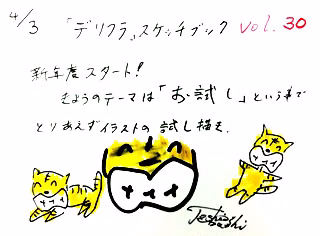 4/3 「デリフラ」スケッチブック vol.30
新年度スタート!
きょうのテーマは「お試し」という事で
とりあえずイラストの試し描き。